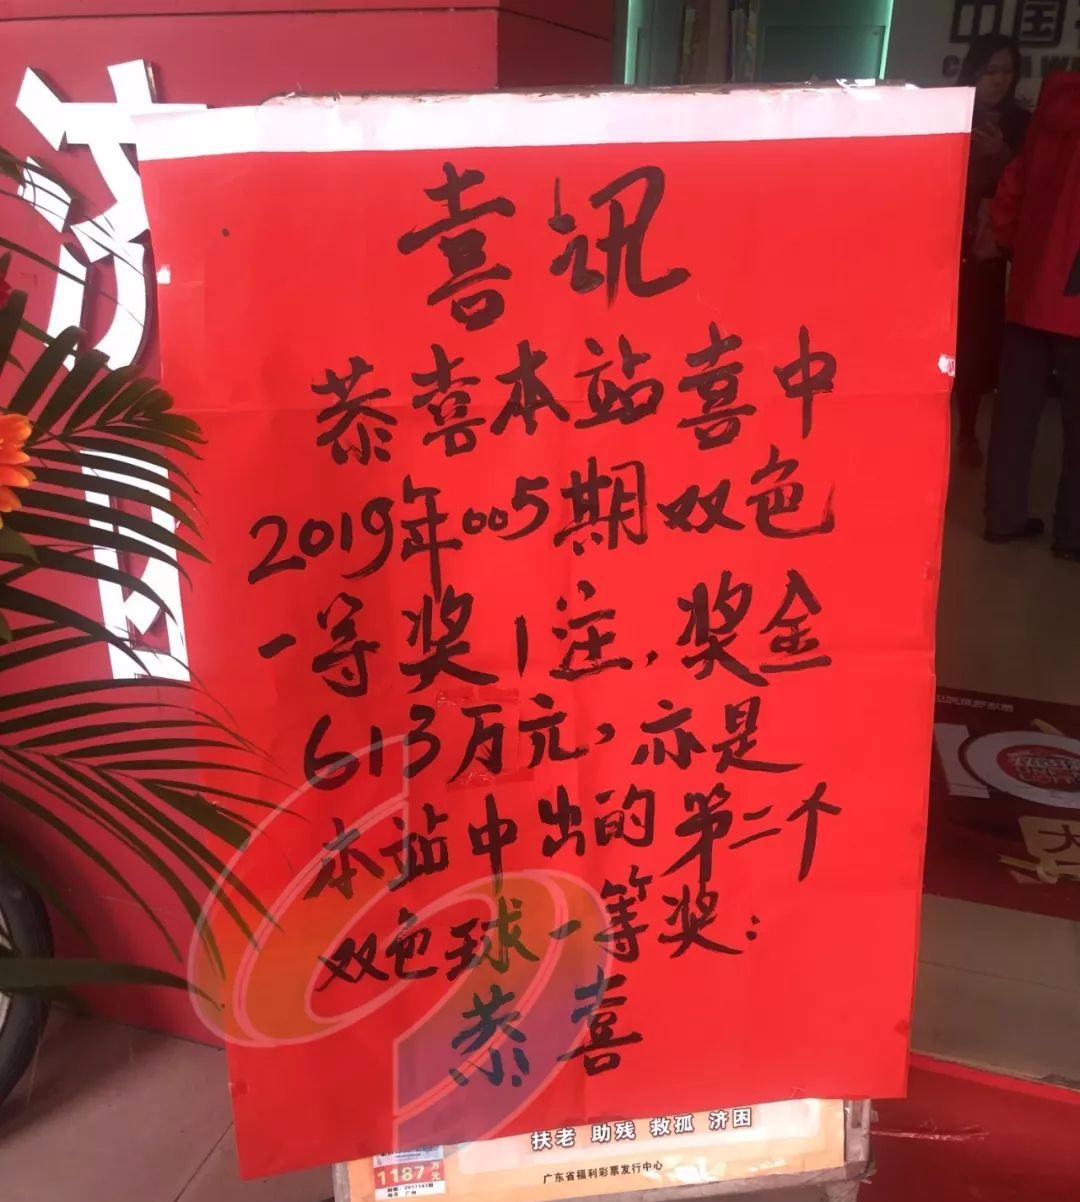 中国
喜讯
恭喜本站喜中
2019年005期双色
一等奖1注,奖金
613万元,亦是
本站中出的第二个
双色球一等奖:
恭喜
扶老 助残 救孤 济困
1187万元
广东省福利彩票发行中心